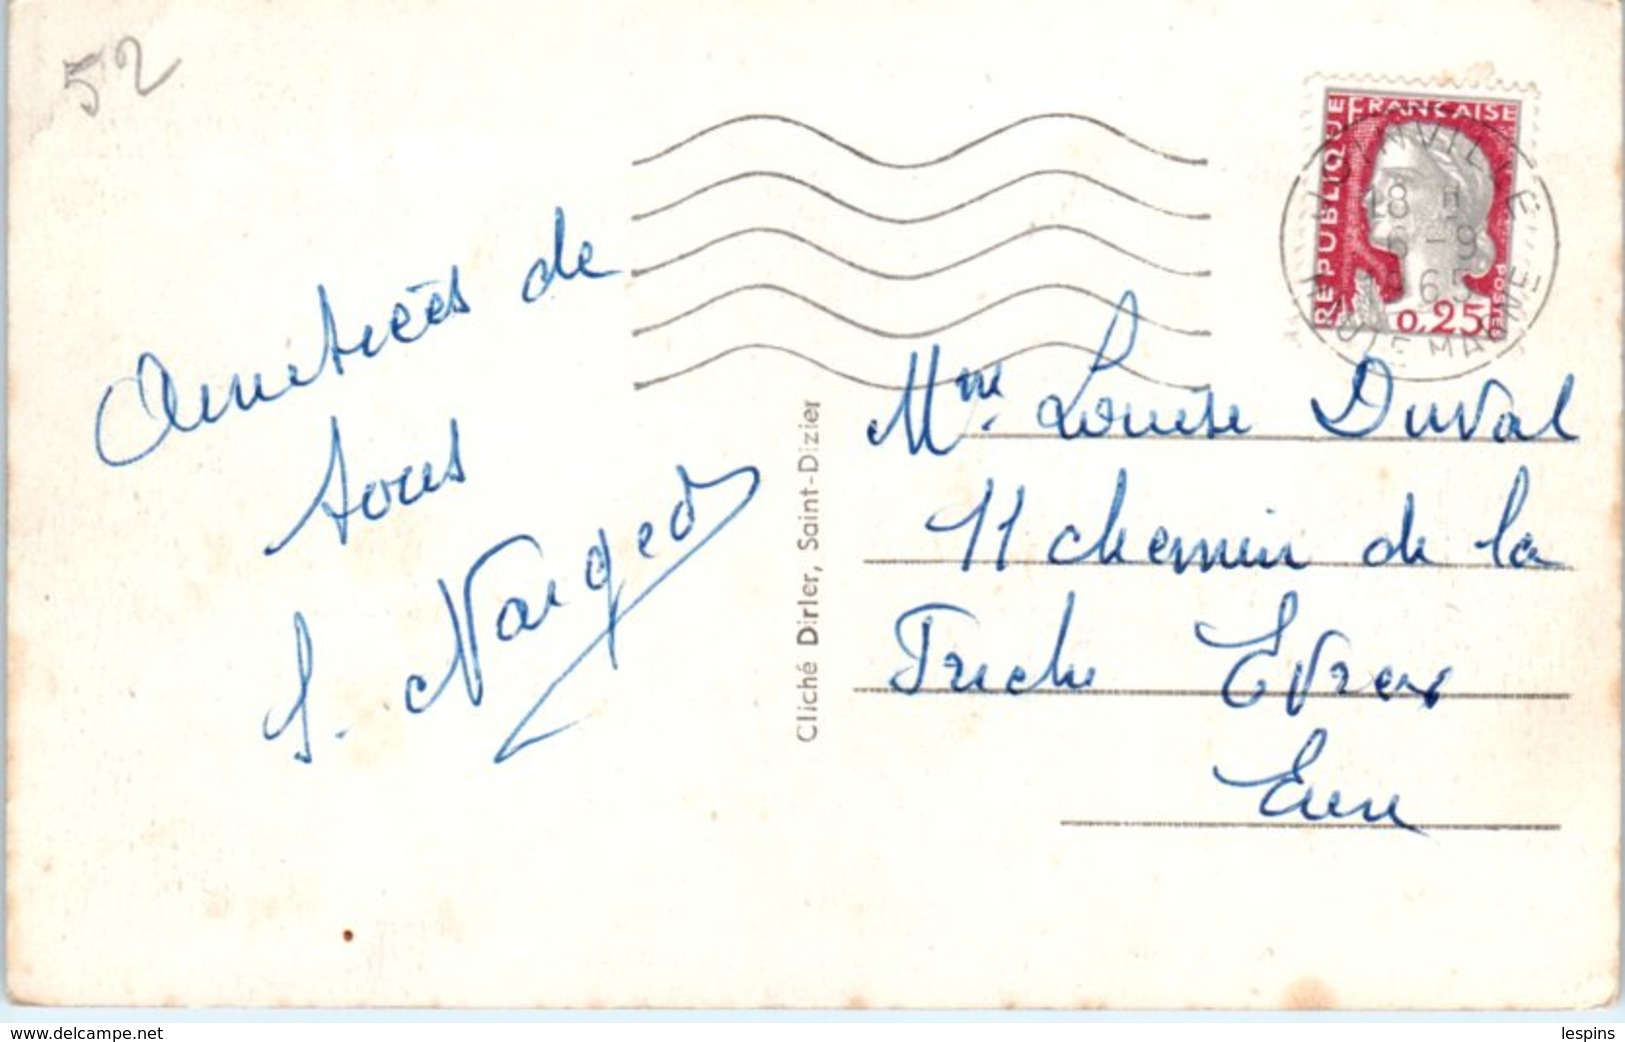 52
Amitiées de
tous
S. Narged
Cliché Dirler, Saint-Dizier
REPUBLIQUE FRANÇAISE
POSTES
0,25
JOINVILLE
18 H
6 - 9
1965
HAUTE MARNE
Mme. Louise Duval
11 chemin de la
Friche Evreux
Eure
www.delcampe.net
lespins